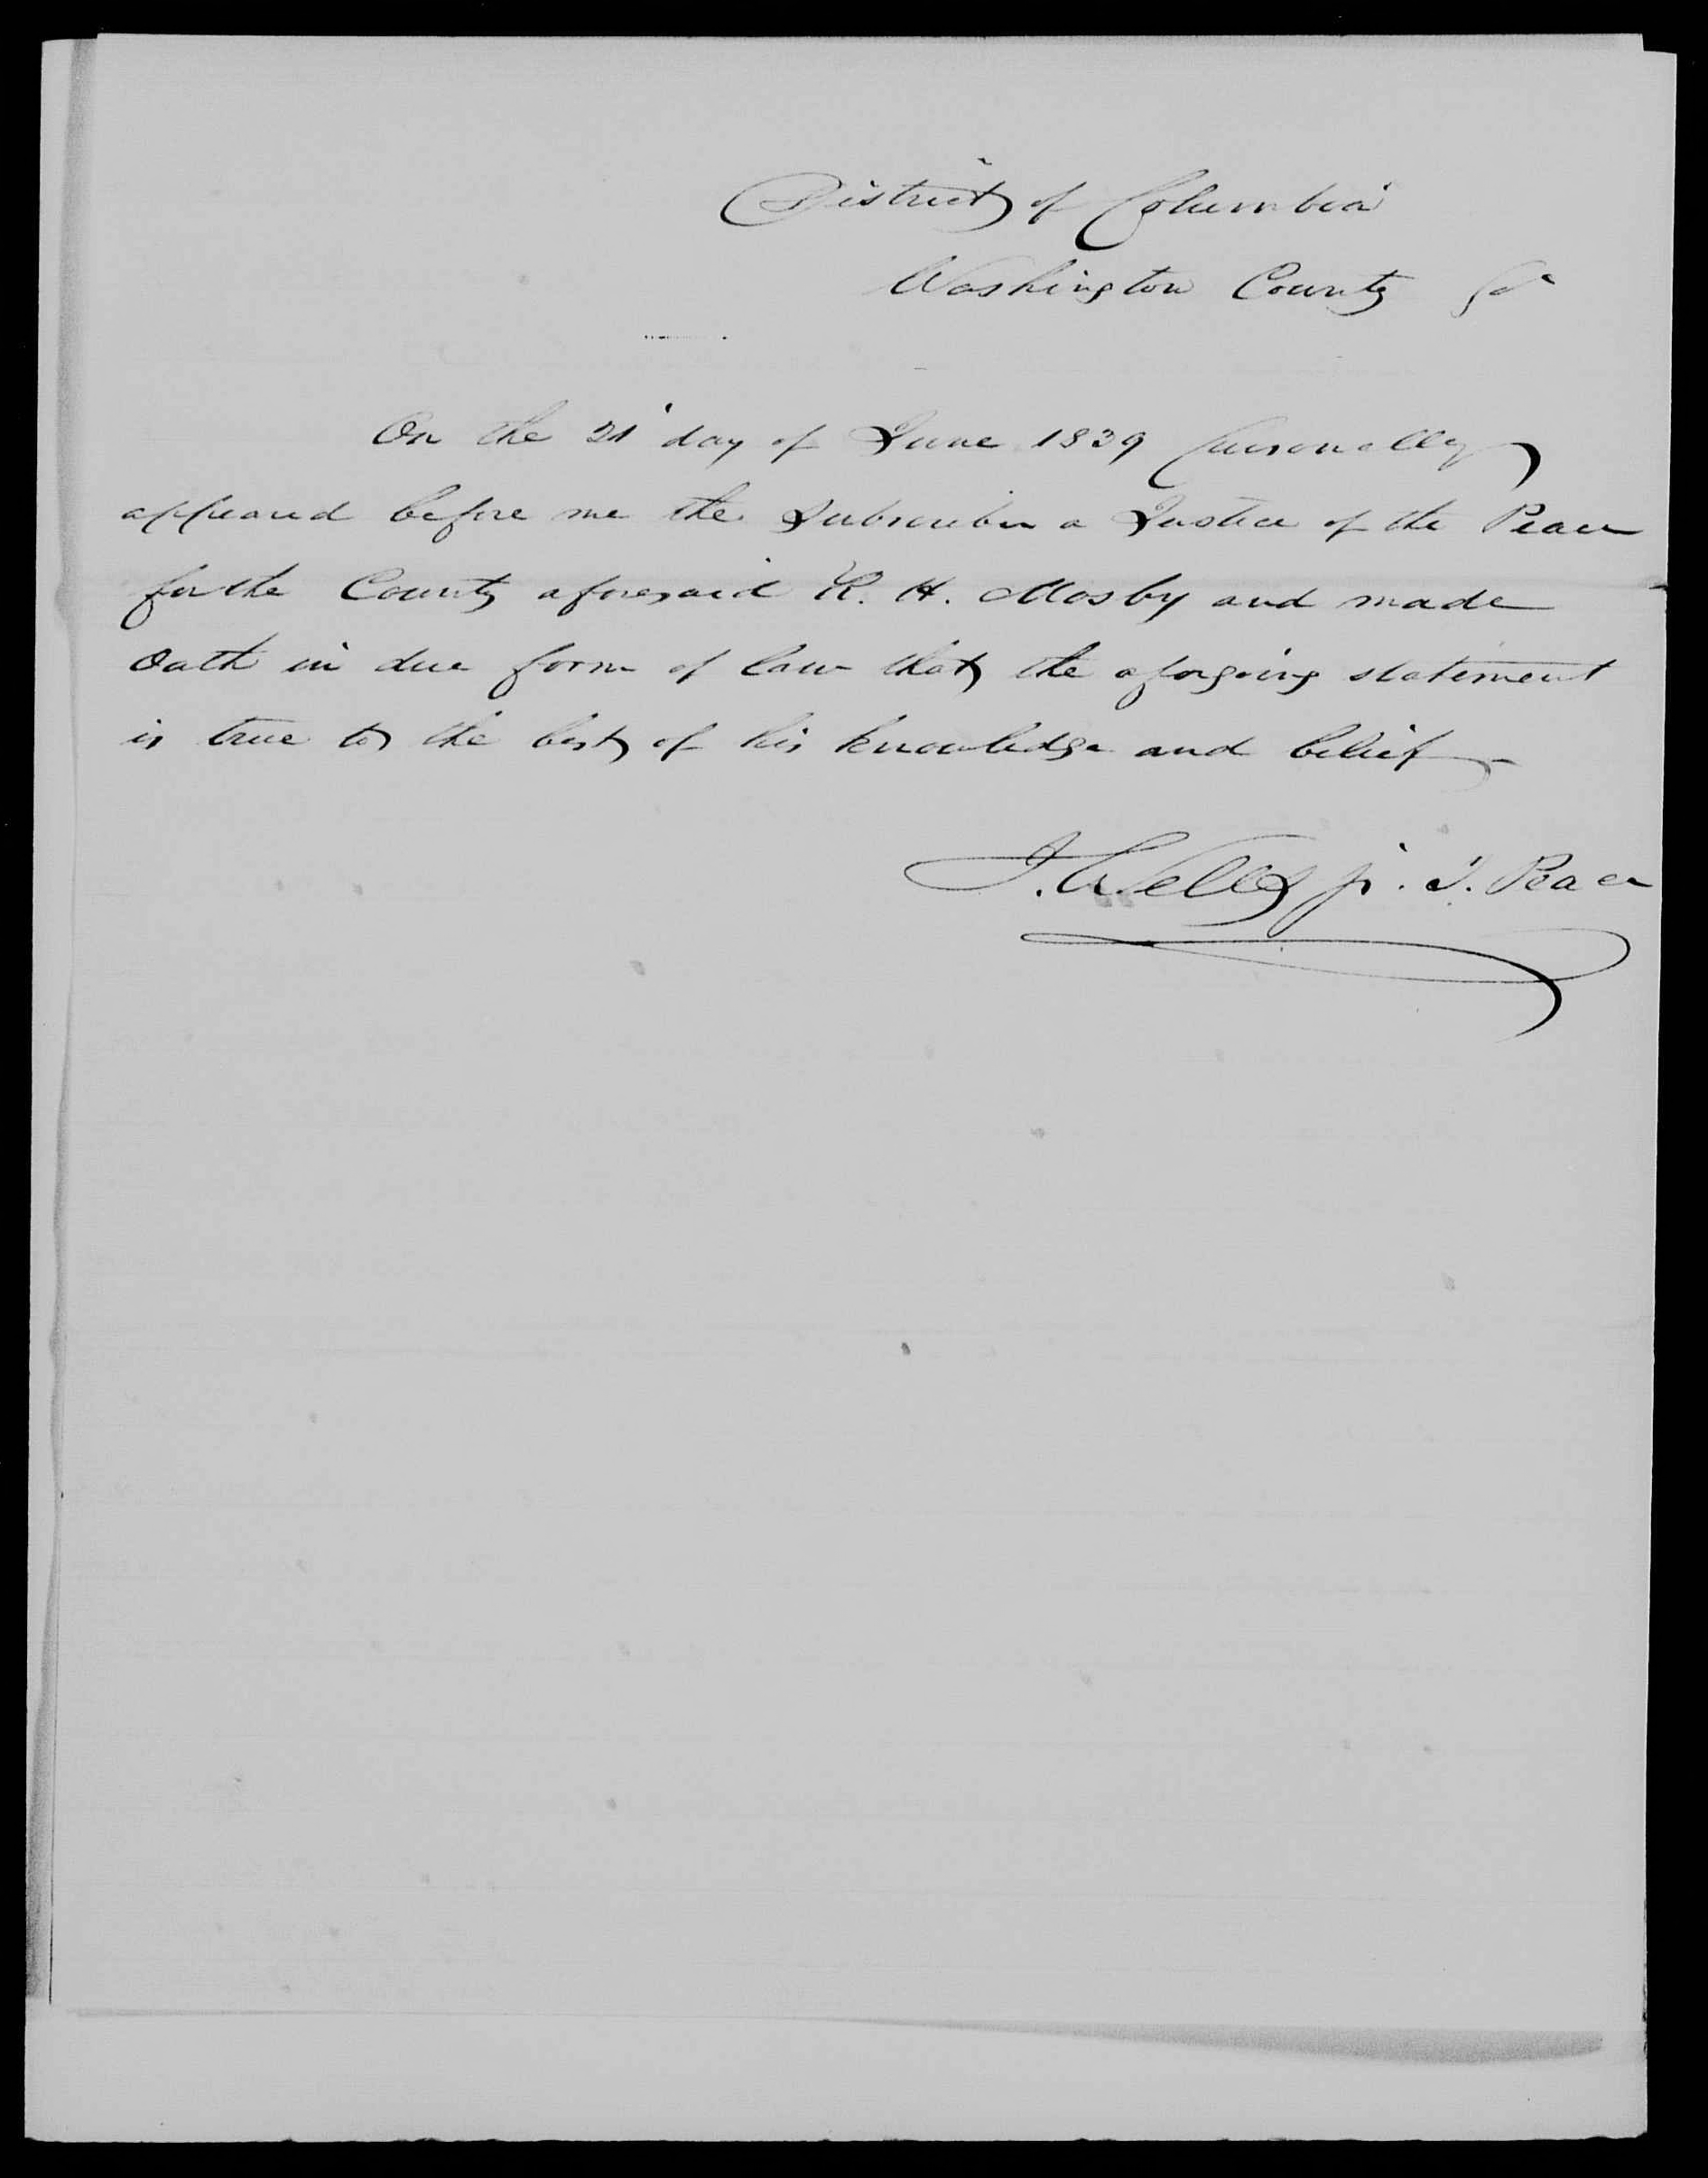 District of Columbia
Washington County Sct
On the 21st day of June 1839 personally
appeared before me the Subscriber a Justice of the Peace
for the County aforesaid R. H. Mosby and made
Oath in due form of law that the aforgoing statement
is true to the best of his knowledge and belief
J. Wells jr. J. Peace